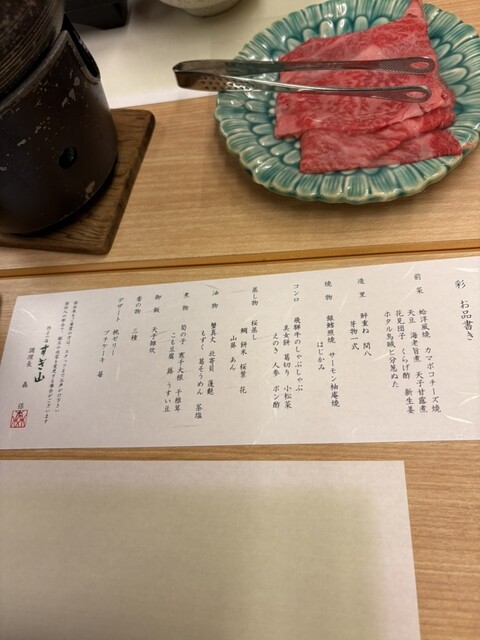 彩 お品書き
前菜 蛤洋風焼 カマボコチーズ焼
天豆 海老旨煮 天子甘露煮
花見団子 くらげ酢 新生姜
ホタル烏賊と分葱ぬた
造里 鮮重ね 間八
芽物一式
焼物 銀鱈照焼 サーモン柚庵焼
はじかみ
コンロ 飛騨牛のしゃぶしゃぶ
美女餅 葛切り 小松菜
えのき 人参 ポン酢
蒸し物 桜蒸し
鯛 餅米 桜葉 花
山葵 あん
油物 蟹真丈 北寄貝 蓬麩
もずく 葛そうめん 茶塩
煮物 筍の子 寒干大根 干椎茸
こも豆腐 蕗 うすい豆
御飯 天子雑炊
香の物 三種
デザート 桃ゼリー
プチケーキ 苺
すぎ山
調理長 森